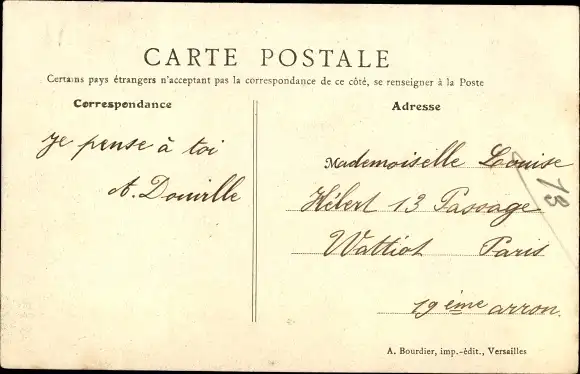 CARTE POSTALE
Certains pays étrangers n'acceptant pas la correspondance de ce côté, se renseigner à la Poste
Correspondance
Adresse
je pense à toi
A. Douville
Mademoiselle Louise
Hébert 13 Passage
Wattiot Paris
19 ème arron.
13
A. Bourdier, imp.-édit., Versailles